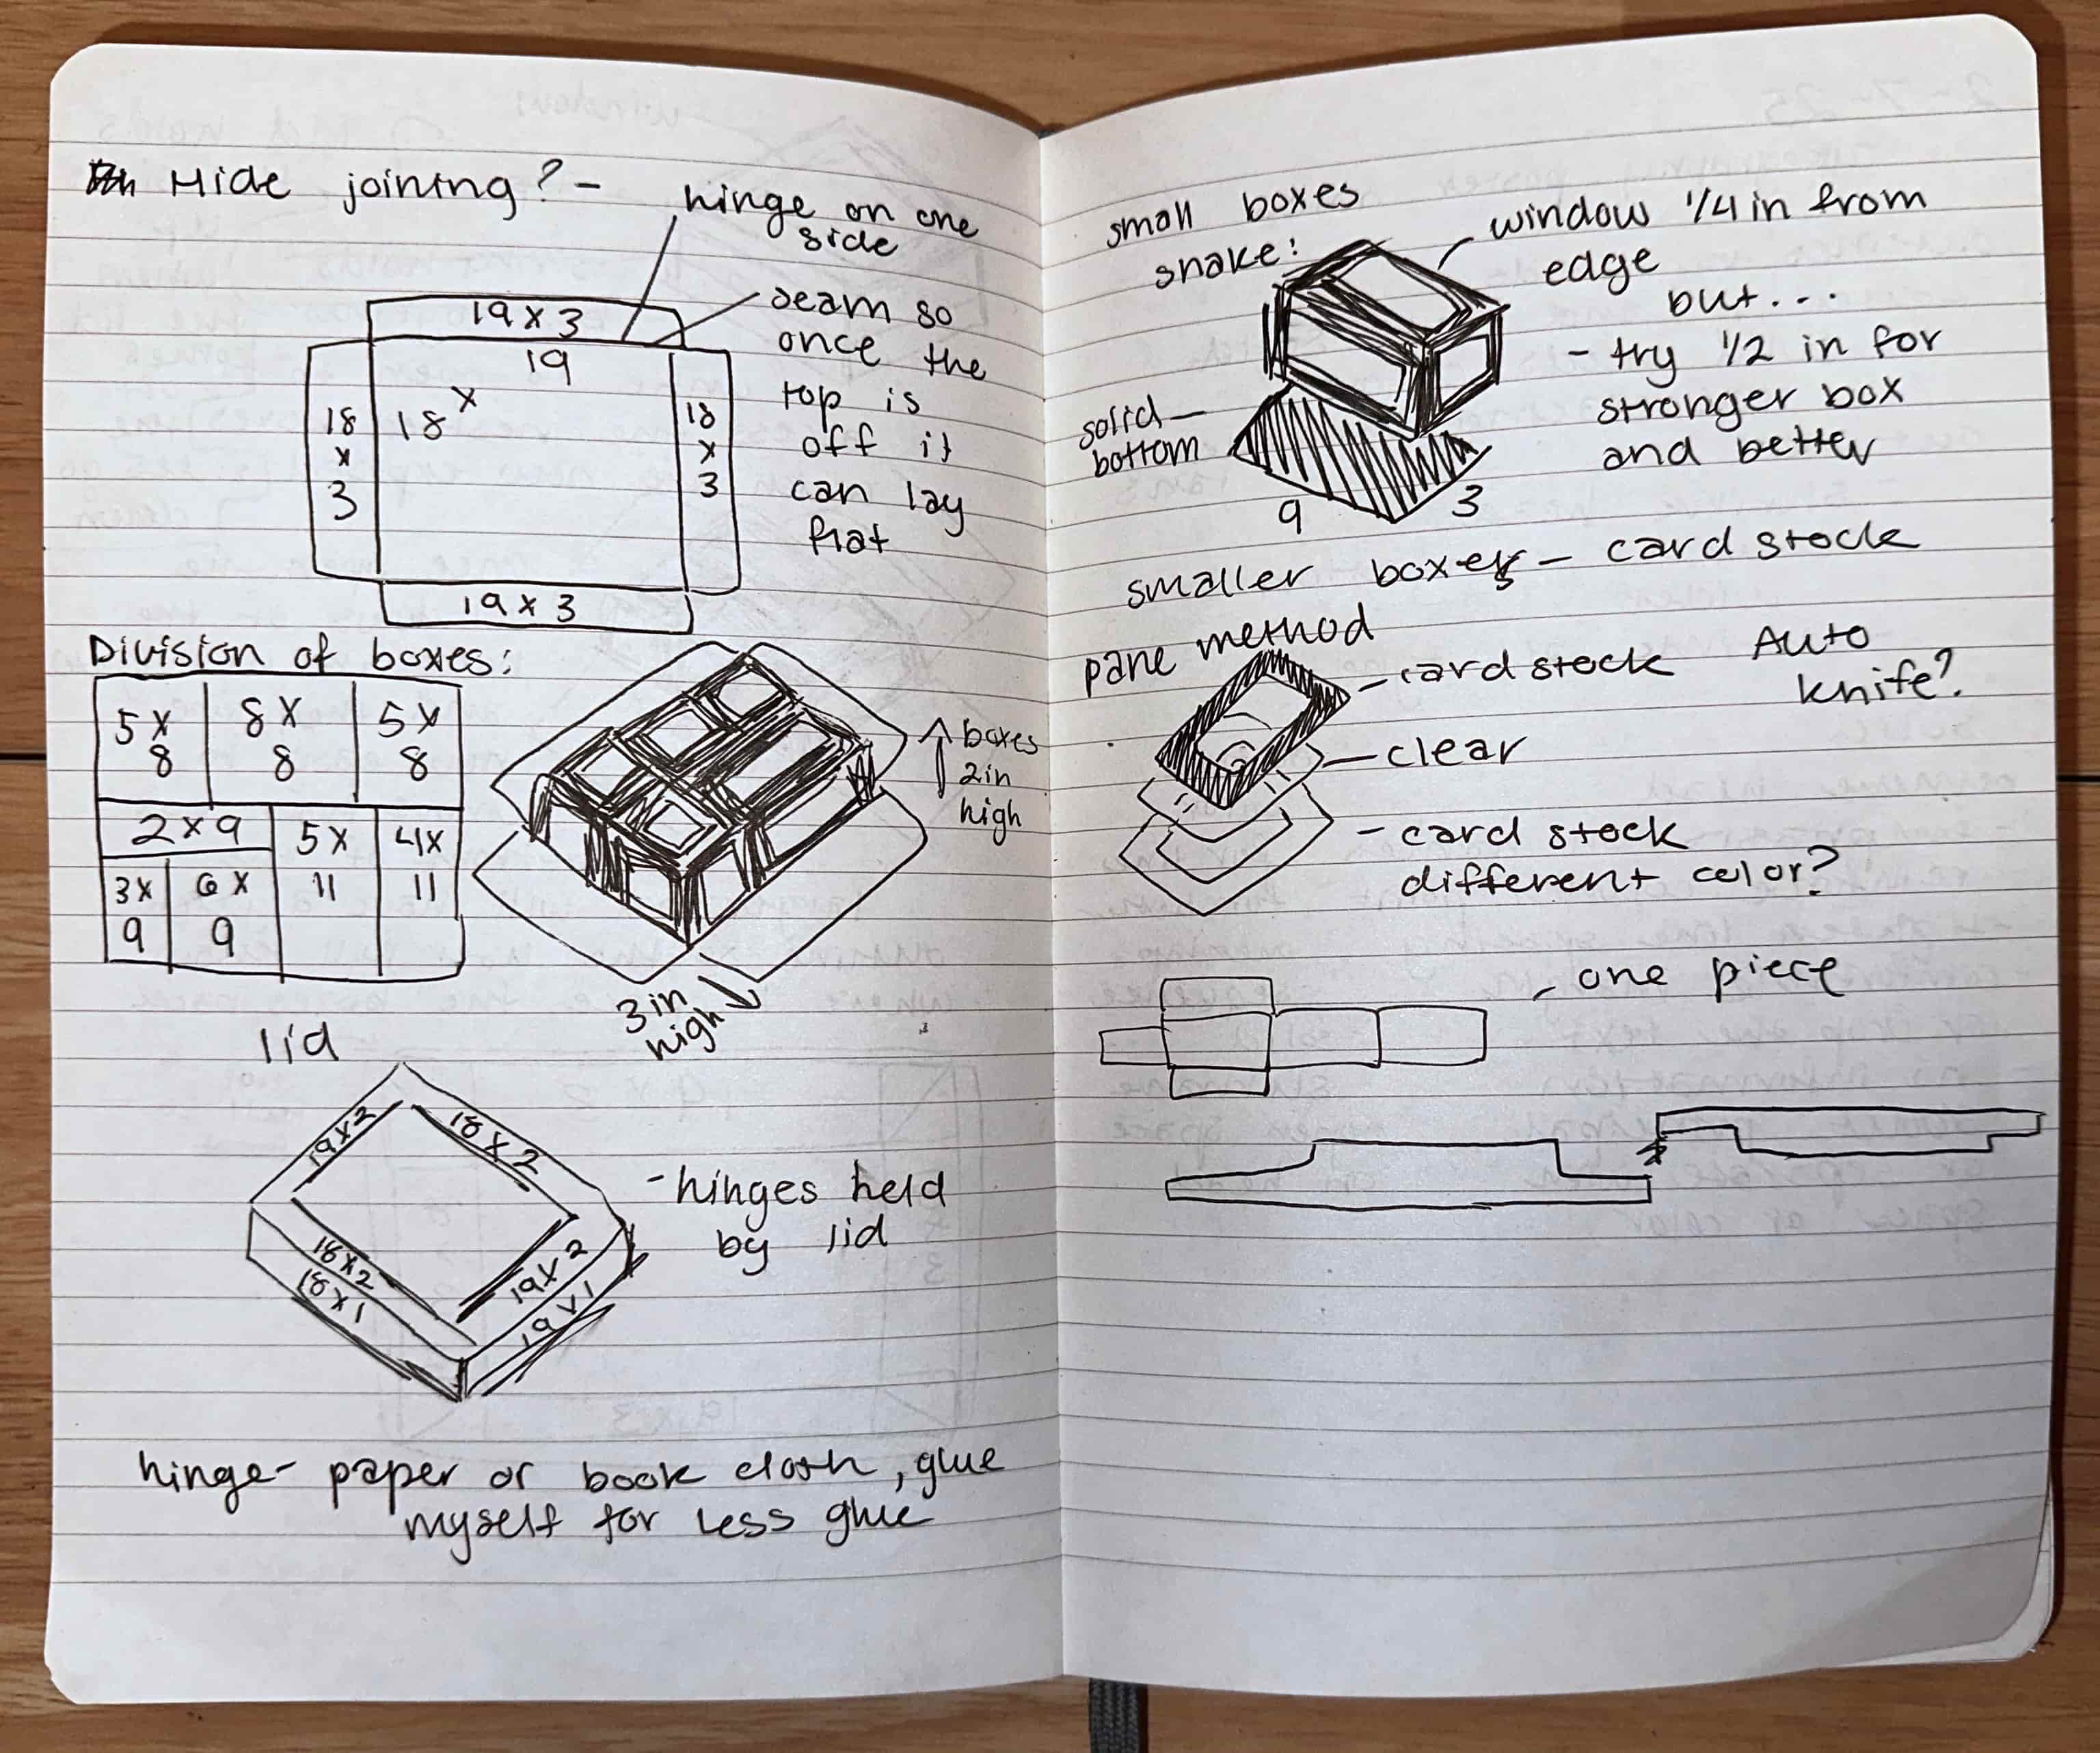 Hide joining? - hinge on one
side
seam so
once the
top is
off it
can lay
flat
19 x 3
19
x
18
18
x
3
18
x
3
19 x 3
Division of boxes:
5 x
8
8 x
8
5 x
8
2 x 9
5 x
11
4 x
11
3 x
9
6 x
9
boxes
2 in
high
3 in
high
lid
19 x 2
18 x 2
18 x 2
18 x 1
19 x 2
19 x 1
- hinges held
by lid
hinge - paper or book cloth, glue
myself for less glue
small boxes
snake:
window 1/4 in from
edge
but...
- try 1/2 in for
stronger box
and better
solid
bottom
9
3
smaller boxes - card stock
pane method
- card stock
Auto
knife?
- clear
- card stock
different color?
- one piece